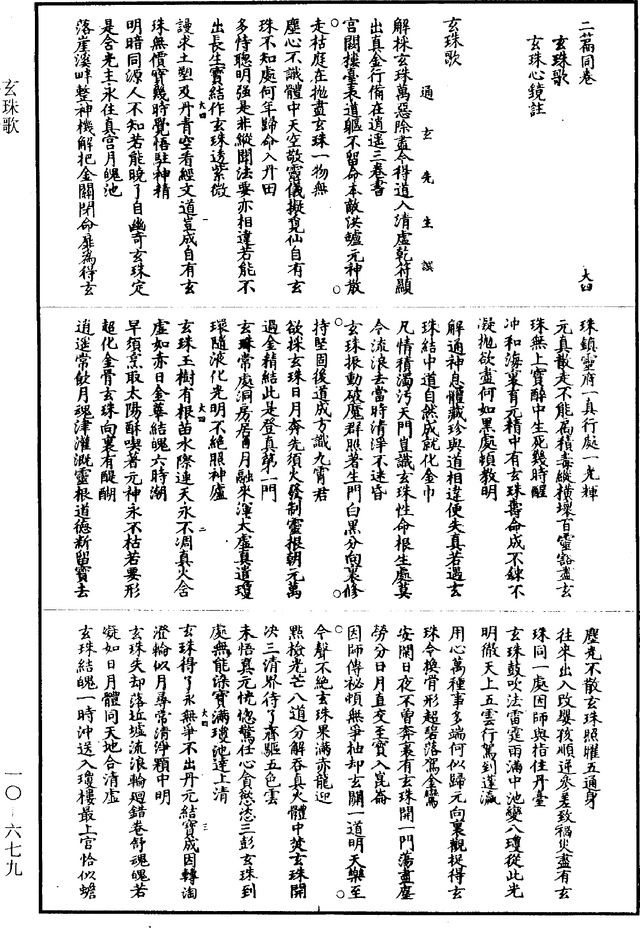 二篇同卷
玄珠歌
玄珠心鏡註
大四
玄珠歌
通玄先生譔
解採玄珠萬惡除盡令得道入清虛乾符顯
出真金行備在逍遙三卷書
宮闕樓臺表道軀不留命本敵洪爐元神散
走枯庭在抛盡玄珠一物無
塵心不識體中天空敬靈儀擬覓仙自有玄
珠不知處何年歸命入丹田
多恃聰明強是非縱聞法要亦相違若能不
出長生寶結作玄珠透紫微
謾求土塑及丹青空看經文道豈成自有玄
珠無價寶幾時覺悟駐神精
明暗同源人不知若能曉了自幽奇玄珠定
是合光主永住真宮月魄池
落崖溪畔整神機解把金關閉命扉為得玄
珠鎮靈府一真行處一光輝
元真散走不能爲積毒縱橫壞百靈豁盡玄
珠無上寶醉中生死幾時醒
沖和海裏育元精中有玄珠壽命成不鍊不
凝抛欲盡何如黑處頓教明
解通神息體藏珍與道相違便失真若遇玄
珠結中道自然成就化金巾
凡情積濁污天門豈識玄珠性命根生處莫
令流浪去當時清淨不迷昏
玄珠振動破魔群照著生門白黑分向裏修
持堅固後道成方識九霄君
欲採玄珠日月奔先須火發制靈根朝元萬
過金精結此是登真第一門
玄珠常處洞房居月融來渾太虛真道瓊
環隨液化光明不絶照神廬
玄珠玉樹有根苗水際連天永不凋真火合
虛如赤日金尊結魄六時潮
早須烹取太陽酥喫著元神永不枯若要形
超化金骨玄珠向裏有醍醐
逍遥常飲月魂津灌溉靈根道德新留寶去
塵光不散玄珠照耀五通身
往來出入改嬰孩順逆參差致禍災盡有玄
珠同一處因師與指住丹臺
玄珠鼓吹法雷霆雨滿中池變八瓊從此光
明徹天上五雲行駕到蓬瀛
用心萬種事多端何似歸元向裏觀捉得玄
珠令換骨形超碧落駕金鸞
安閑日夜不曾奔裏有玄珠開一門蕩盡塵
勞分日月直交至寶入崑崙
因師傳祕頓無爭抽却玄關一道明天樂至
令聲不絶玄珠果滿赤龍迎
點撿光芒八道分解吞真火體中焚玄珠開
決三清界待了齊驅五色雲
未悟真元恍惚驚任心貪慾恣三彭玄珠到
處無能保寶滿瓊池達上清
玄珠得了永無爭不出丹元結寶成因轉淘
澄輪似月尋常清淨顆中明
玄珠失却落近墟流浪輪迴錯卷舒魂魄若
凝如日月體同天地合清虛
玄珠結魄一時沖送入瓊樓最上宮恰似蟾
玄珠歌
一〇·六七九